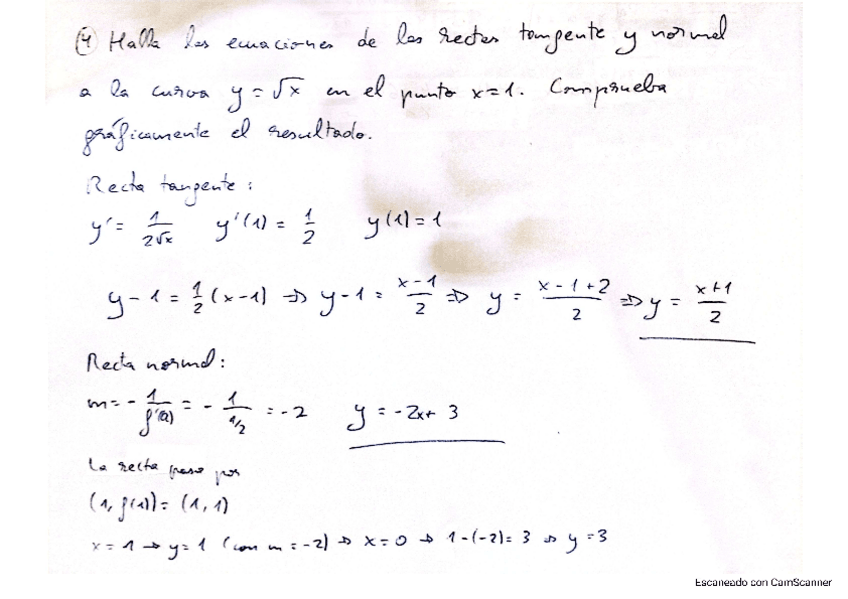 ④ Halla las ecuaciones de las rectas tangente y normal
a la curva y = √x en el punto x=1. Comprueba
gráficamente el resultado.
Recta tangente:
y' = 1/(2√x)   y'(1) = 1/2   y(1) = 1
y - 1 = 1/2 (x-1) ⇒ y-1 = (x-1)/2 ⇒ y = (x-1+2)/2 ⇒ y = (x+1)/2
Recta normal:
m = - 1/f'(a) = - 1/(1/2) = -2   y = -2x+3
La recta pasa por
(1, f(1)) = (1,1)
x=1 → y=1 (con m=-2) ⇒ x=0 → 1-(-2)=3 ⇒ y=3
Escaneado con CamScanner